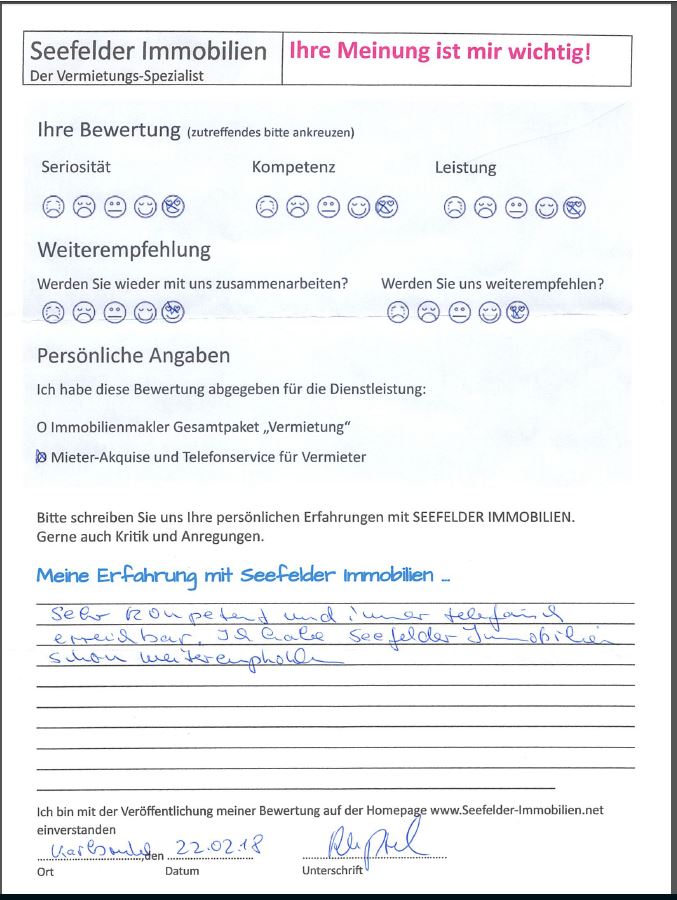 Seefelder Immobilien
Der Vermietungs-Spezialist
Ihre Meinung ist mir wichtig!
Ihre Bewertung (zutreffendes bitte ankreuzen)
Seriosität Kompetenz Leistung
Weiterempfehlung
Werden Sie wieder mit uns zusammenarbeiten? Werden Sie uns weiterempfehlen?
Persönliche Angaben
Ich habe diese Bewertung abgegeben für die Dienstleistung:
O Immobilienmakler Gesamtpaket „Vermietung“
O Mieter-Akquise und Telefonservice für Vermieter
Bitte schreiben Sie uns Ihre persönlichen Erfahrungen mit SEEFELDER IMMOBILIEN.
Gerne auch Kritik und Anregungen.
Meine Erfahrung mit Seefelder Immobilien ...
Sehr kompetent und immer telefonisch
erreichbar. Ich habe Seefelder Immobilien
schon weiterempholen
Ich bin mit der Veröffentlichung meiner Bewertung auf der Homepage www.Seefelder-Immobilien.net
einverstanden
Karlsruhe, den 22.02.18
Ort Datum Unterschrift